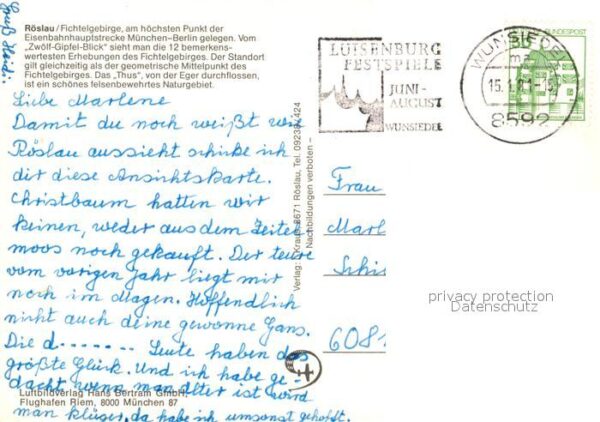 Gruß Heidi
Röslau/Fichtelgebirge, am höchsten Punkt der
Eisenbahnhauptstrecke München–Berlin gelegen. Vom
„Zwölf-Gipfel-Blick" sieht man die 12 bemerkens-
wertesten Erhebungen des Fichtelgebirges. Der Standort
gilt gleichzeitig als der geometrische Mittelpunkt des
Fichtelgebirges. Das „Thus", von der Eger durchflossen,
ist ein schönes felsenbewehrtes Naturgebiet.
Liebe Marlene
Damit du noch weißt wie
Röslau aussieht schicke ich
dir diese Ansichtskarte.
Christbaum hatten wir
keinen, weder aus dem Zeitel
moos noch gekauft. Der teure
vom vorigen Jahr liegt mir
noch im Magen. Hoffendlich
nicht auch deine gewonne Gans.
Die d...... Leute haben das
größte Glück. Und ich habe ge-
dacht wenn man älter ist wird
man klüser, da habe ich umsonst gehofft.
Luftbildverlag Hans Bertram GmbH,
Flughafen Riem, 8000 München 87
Verlag: Kraus, 8671 Röslau, Tel. 09238/424
– Nachbildungen verboten –
LUISENBURG
FESTSPIELE
JUNI-
AUGUST
WUNSIEDEL
WUNSIEDEL
ma
15.1.81-15
8592
50
DEUTSCHE BUNDESPOST
Frau
Marl
Schi
6081
privacy protection
Datenschutz